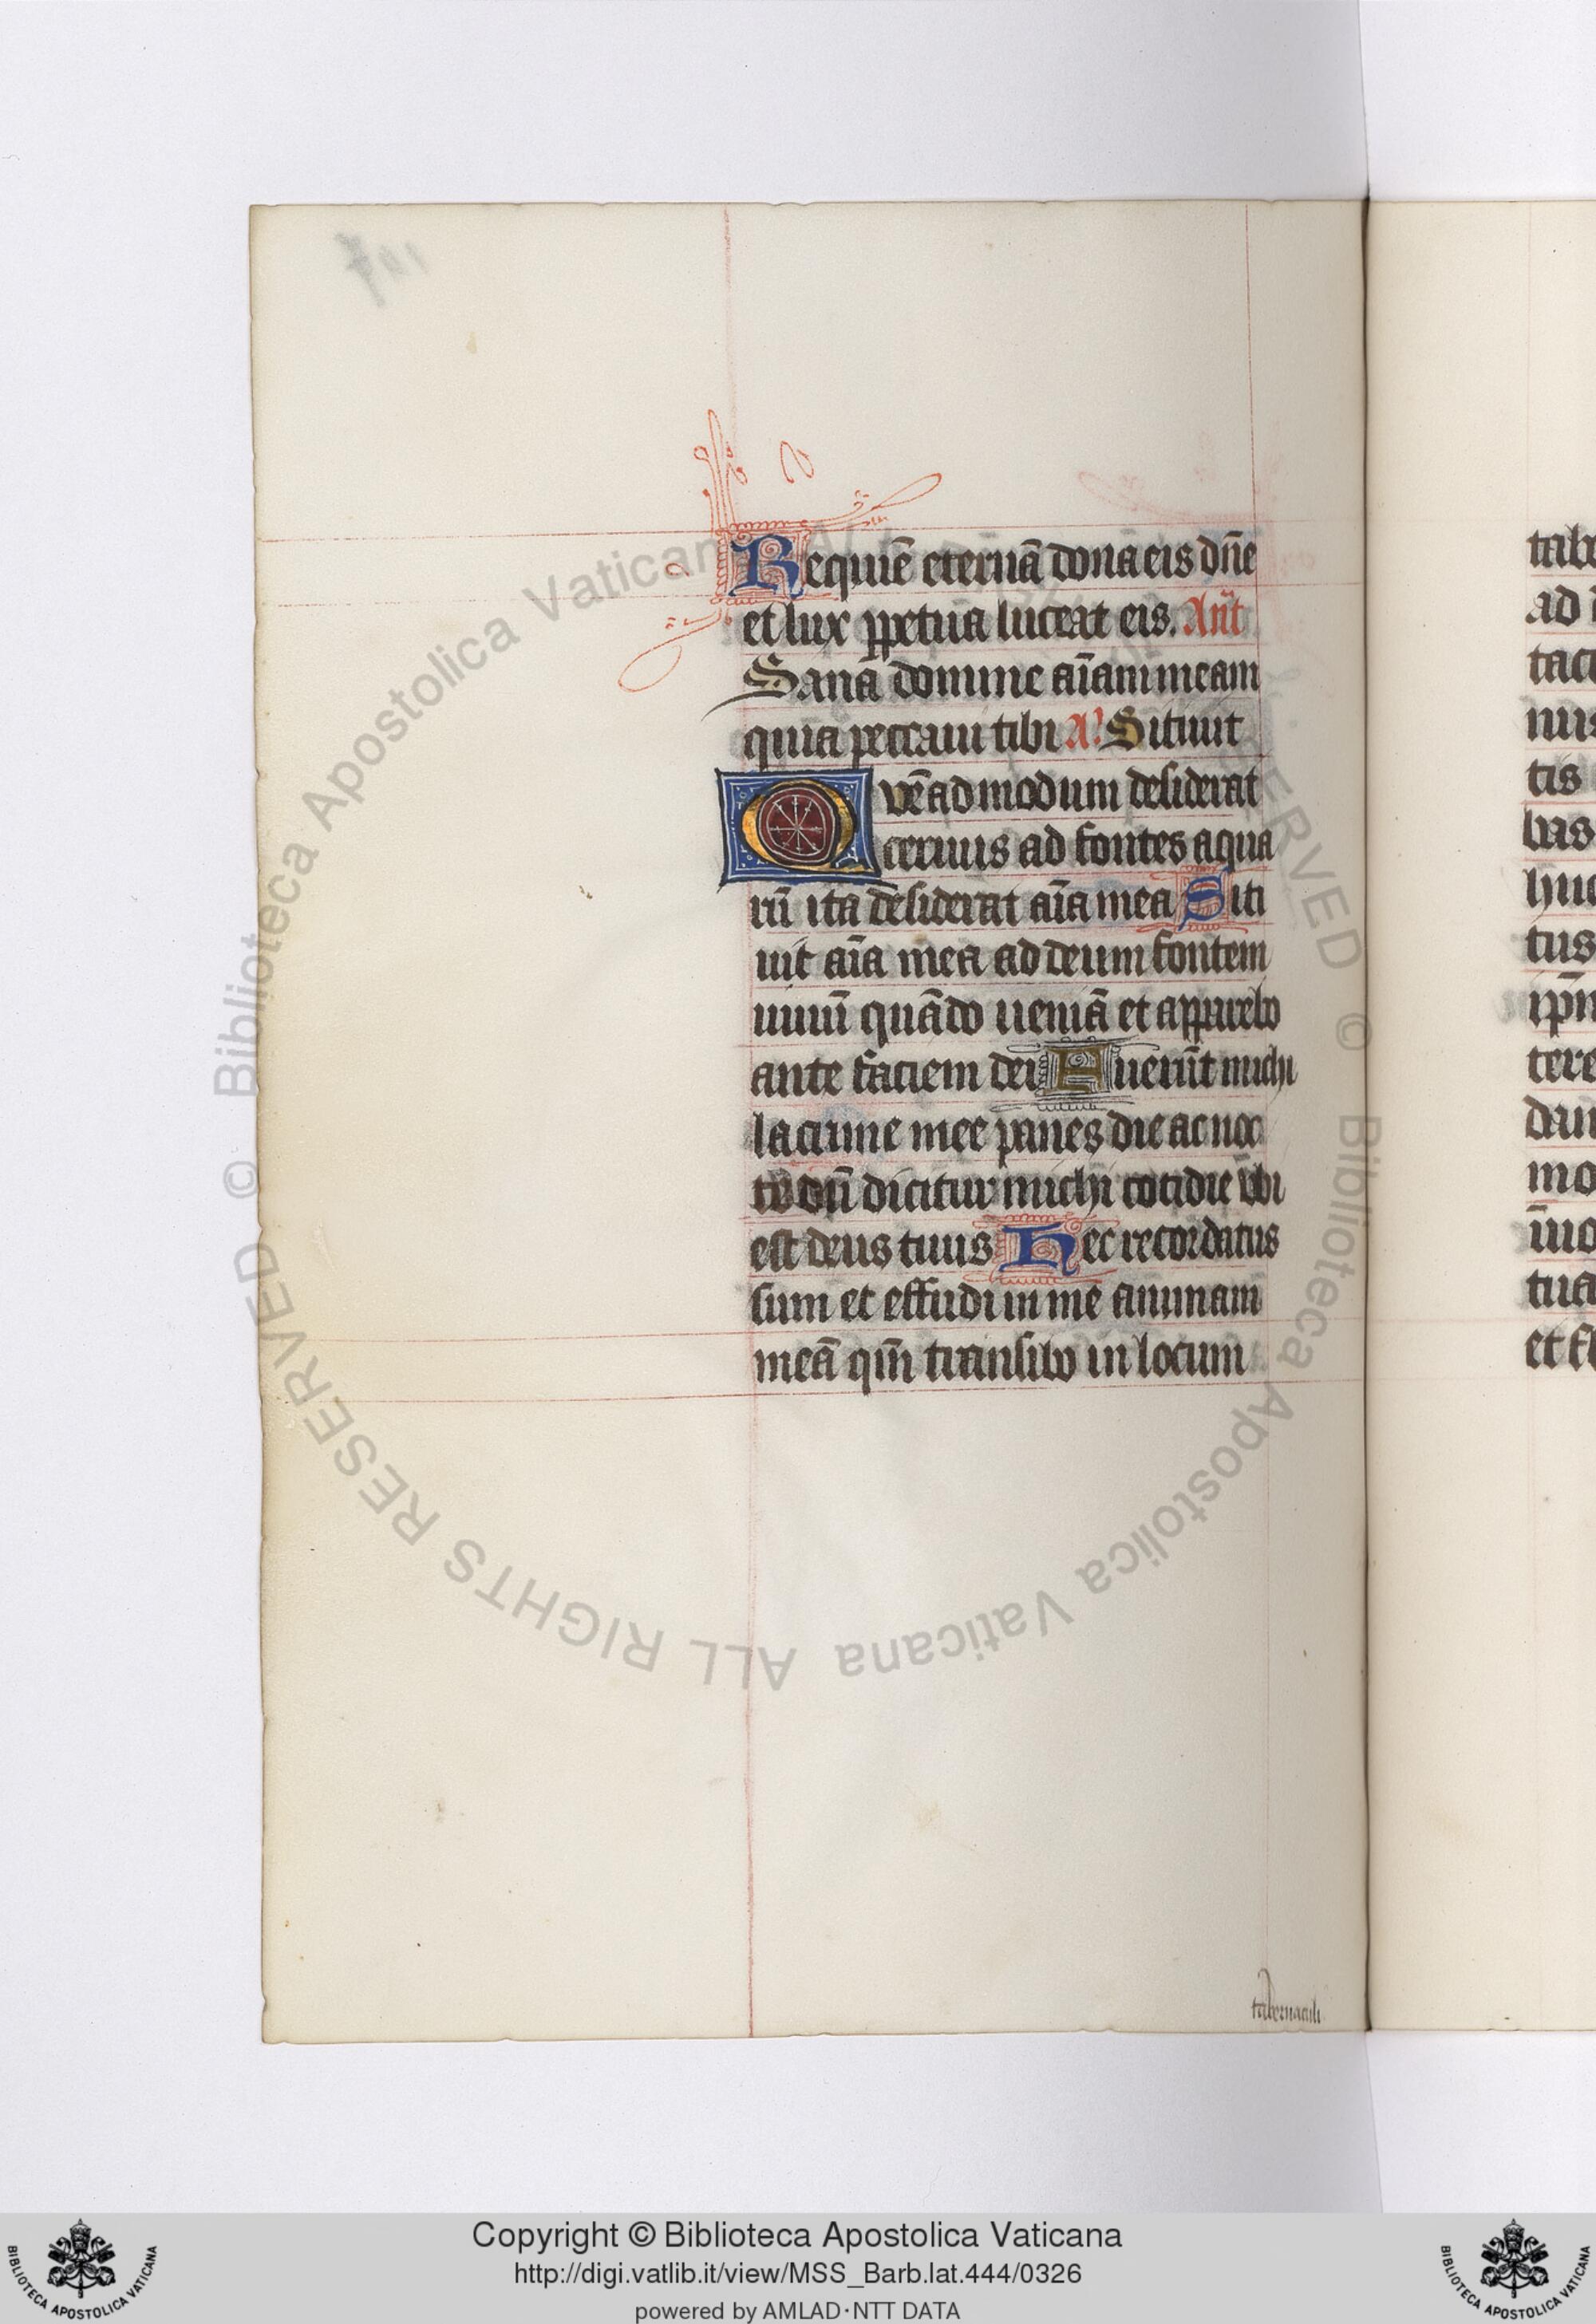 Requiē eternā dona eis dn̄e
et lux ꝑpetua luceat eis. Ant̄
Sanā domine aīam meam
quia peccaui tibi A⁊ Sitiuit
Qvēadmodum desiderat
ceruus ad fontes aqua
rū ita desiderat aīa mea Siti
uit aīa mea ad deum fontem
uiuū quādo ueniā et apparebo
ante faciem dei Fuerūt michi
lacrime mee panes die ac noc
te dū dicitur michi cotidie vbi
est deus tuus Hec recordatus
sum et effudi in me animam
meā qm̄ transibo in locum
tabernaculi
tabe
ad
taci
nus
tis
bus
huc
tus
ipn
tere
dau
mo
tua
© Biblioteca Apostolica Vaticana ALL RIGHTS RESERVED © Biblioteca Apostolica Vaticana ALL RIGHTS RESERVED
Copyright © Biblioteca Apostolica Vaticana
http://digi.vatlib.it/view/MSS_Barb.lat.444/0326
powered by AMLAD·NTT DATA
BIBLIOTECA APOSTOLICA VATICANA
BIBLIOTECA APOSTOLICA VATICANA